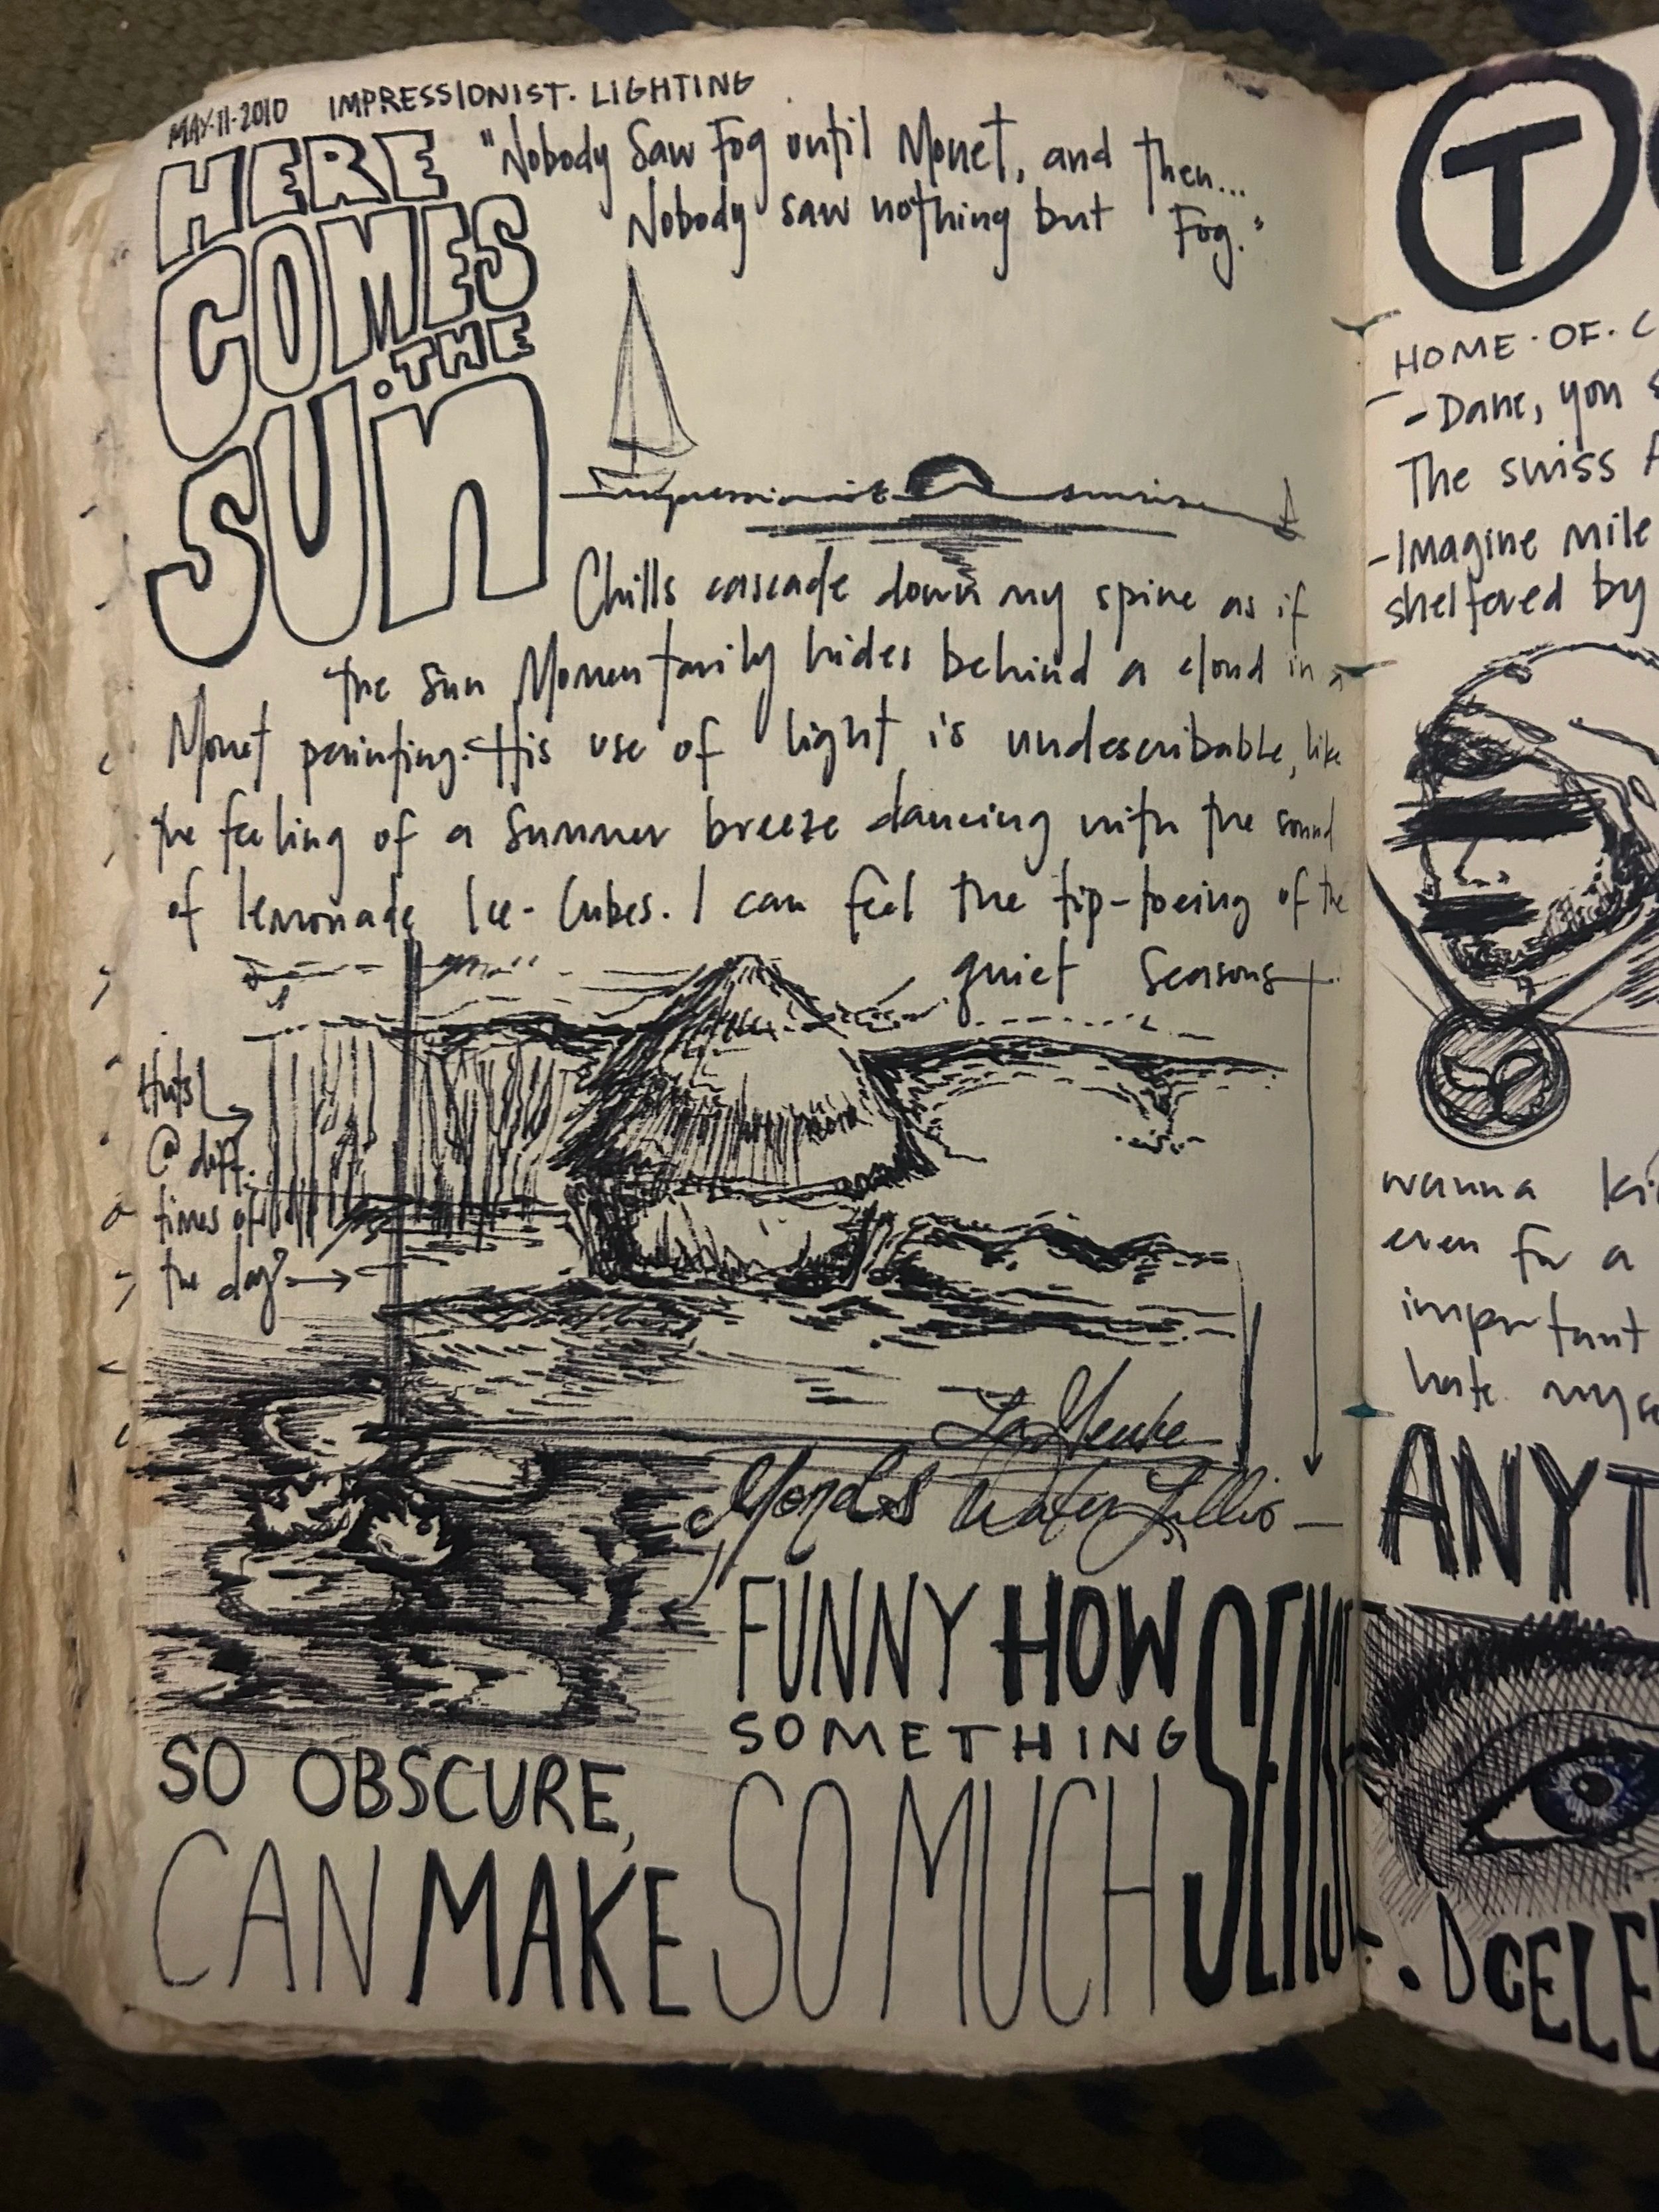 MAY·11·2010 IMPRESSIONIST. LIGHTING
HERE
COMES
·THE
SUN
"Nobody Saw Fog until Monet, and then...
Nobody saw nothing but Fog."
impressionist sunrise
Chills cascade down my spine as if
the Sun Momentarily hides behind a cloud in a
Monet painting. His use of light is undescribable, like
the feeling of a Summer breeze dancing with the sound
of lemonade Ice-Cubes. I can feel the tip-toeing of the
quiet Seasons
Huts
@ diff.
times of
the day?
Water Lillies
FUNNY HOW
SOMETHING
SO OBSCURE,
CAN MAKE SO MUCH SENSE
T
HOME·OF·C
-Dane, you
The swiss
-Imagine mile
sheltered by
wanna
even for a
important
hate myse
ANYT